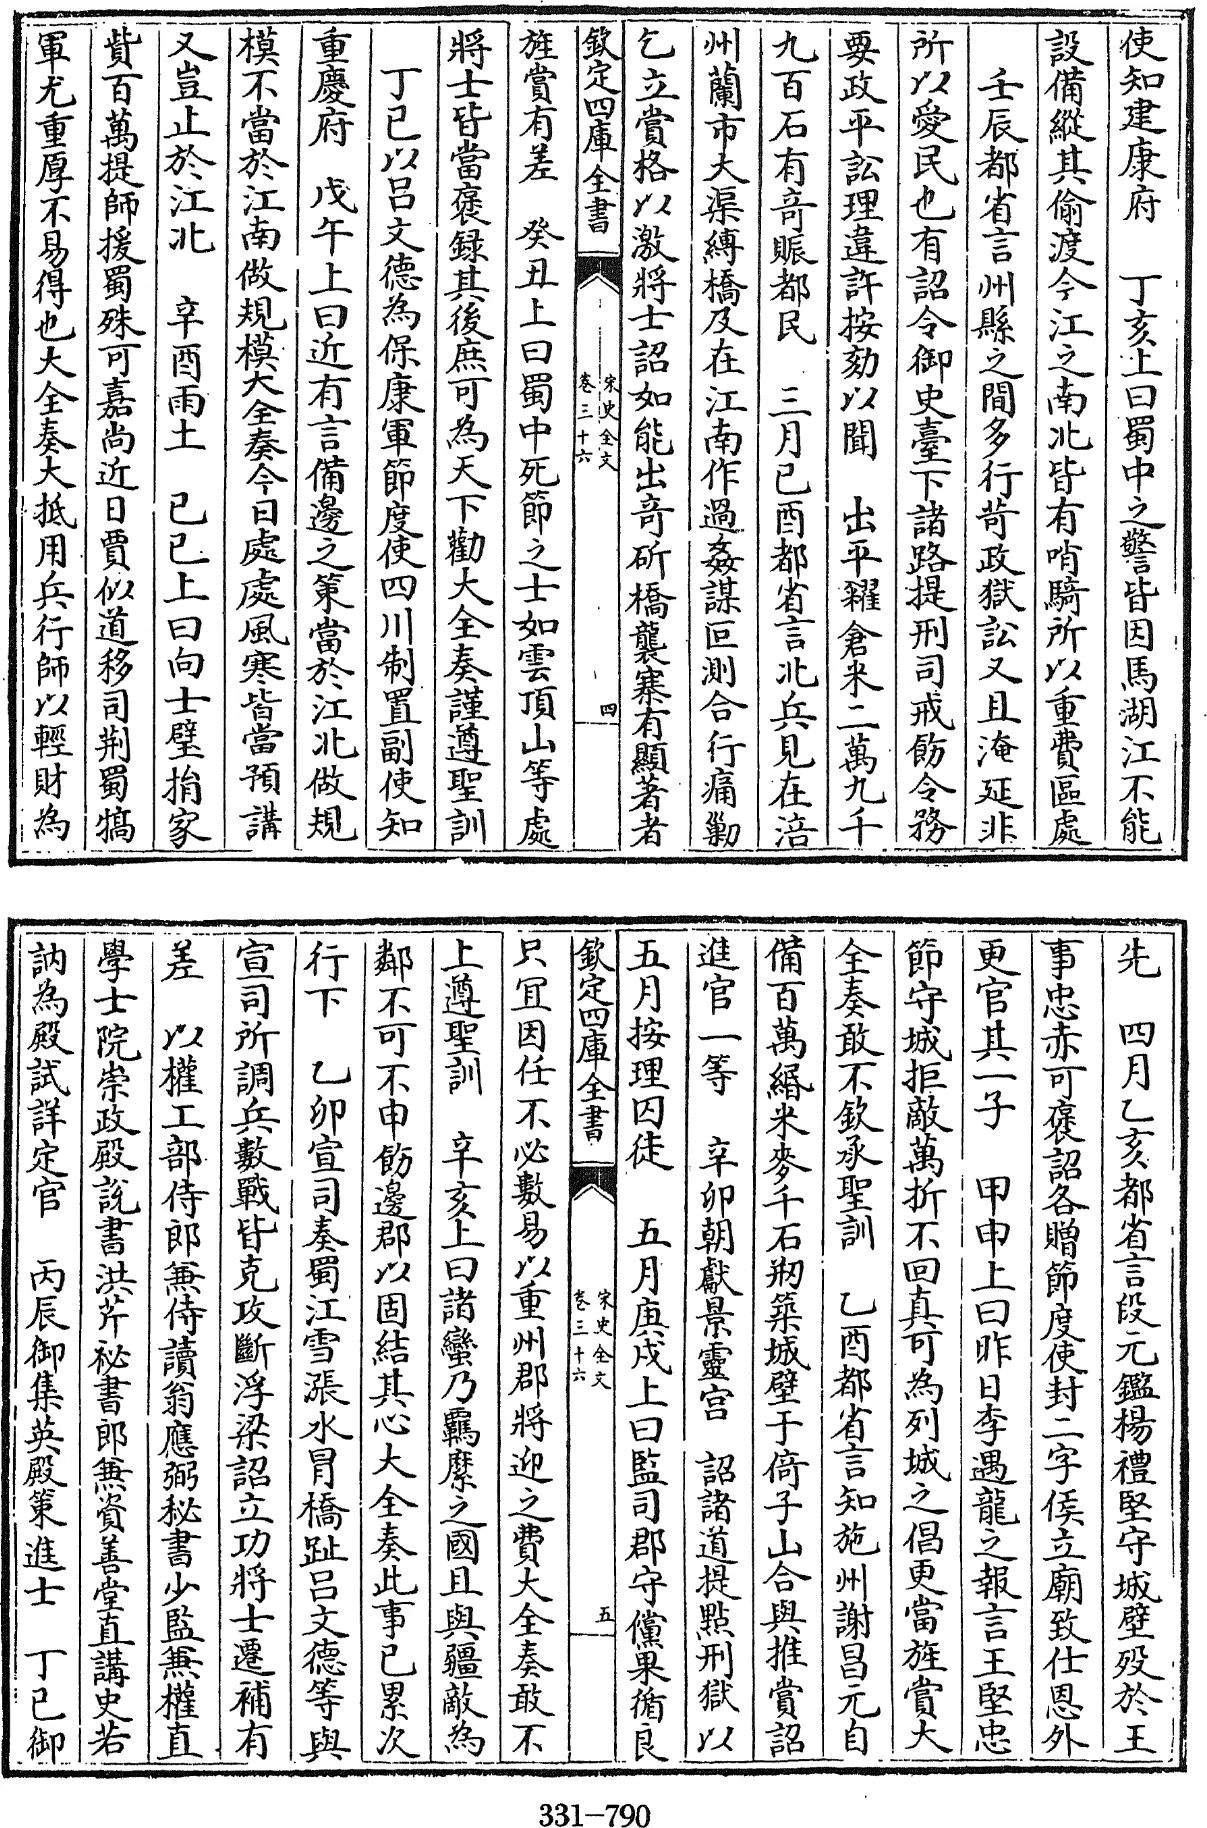 使知建康府　丁亥上曰蜀中之警皆因馬湖江不能
設備縱其偷渡今江之南北皆有哨騎所以重費區處
壬辰都省言州縣之間多行苛政獄訟又且淹延非
所以愛民也有詔令御史臺下諸路提刑司戒飭令務
要政平訟理違許按劾以聞　出平糴倉米二萬九千
九百石有奇賑都民　三月己酉都省言北兵見在涪
州蘭市大渠縛橋及在江南作過姦謀叵測合行痛勦
乞立賞格以激將士詔如能出奇斫橋襲寨有顯著者
欽定四庫全書　宋史全文　卷三十六　四
旌賞有差　癸丑上曰蜀中死節之士如雲頂山等處
將士皆當褒録其後庶可為天下勸大全奏謹遵聖訓
丁巳以呂文德為保康軍節度使四川制置副使知
重慶府　戊午上曰近有言備邊之策當於江北做規
模不當於江南做規模大全奏今日處處風寒皆當預講
又豈止於江北　辛酉雨土　己巳上曰向士璧捐家
貲百萬提師援蜀殊可嘉尚近日賈似道移司荆蜀犒
軍尤重厚不易得也大全奏大抵用兵行師以輕財為
先　四月乙亥都省言段元鑑楊禮堅守城壁殁於王
事忠赤可褒詔各贈節度使封二字侯立廟致仕恩外
更官其一子　甲申上曰昨日李遇龍之報言王堅忠
節守城拒敵萬折不回真可為列城之倡更當旌賞大
全奏敢不欽承聖訓　乙酉都省言知施州謝昌元自
備百萬緡米麥千石剏築城壁于倚子山合與推賞詔
進官一等　辛卯朝獻景靈宫　詔諸道提點刑獄以
五月按理囚徒　五月庚戌上曰監司郡守儻果循良
欽定四庫全書　宋史全文　卷三十六　五
只宜因任不必數易以重州郡將迎之費大全奏敢不
上遵聖訓　辛亥上曰諸蠻乃羈縻之國且與疆敵為
鄰不可不申飭邊郡以固結其心大全奏此事已累次
行下　乙卯宣司奏蜀江雪漲水冐橋趾呂文德等與
宣司所調兵數戰皆克攻斷浮梁詔立功將士遷補有
差　以權工部侍郎兼侍讀翁應弼秘書少監兼權直
學士院崇政殿説書洪芹祕書郎兼資善堂直講史若
訥為殿試詳定官　丙辰御集英殿策進士　丁巳御
331-790